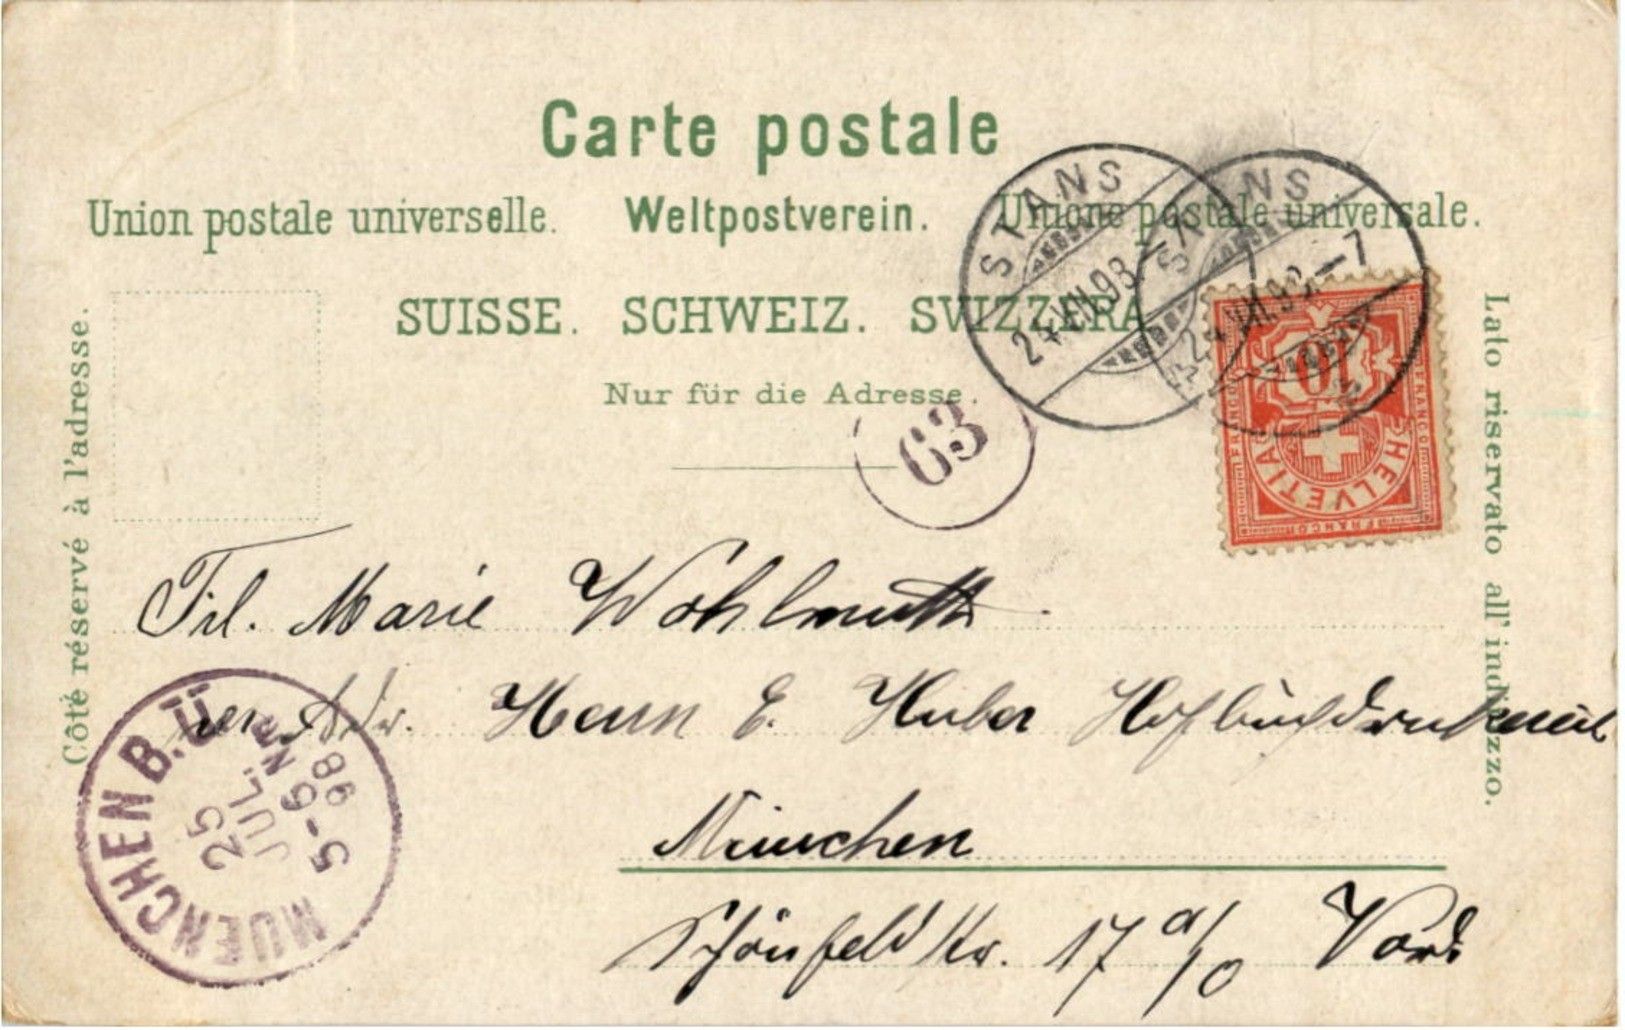 Carte postale
Union postale universelle. Weltpostverein. Unione postale universale.
SUISSE. SCHWEIZ. SVIZZERA
Nur für die Adresse.
Côté réservé à l'adresse.
Lato riservato all' indirizzo.
STANS
24.VII.98.
STANS
24.VII.98.–7
63
10
HELVETIA
FRANCO
Frl. Marie Wohlmuth
Adr. Herrn E. Huber Hofbuchdruckerei
München
Schönfeldstr. 17 a/0
MUENCHEN B.
25
JUL.
5-6 N
98